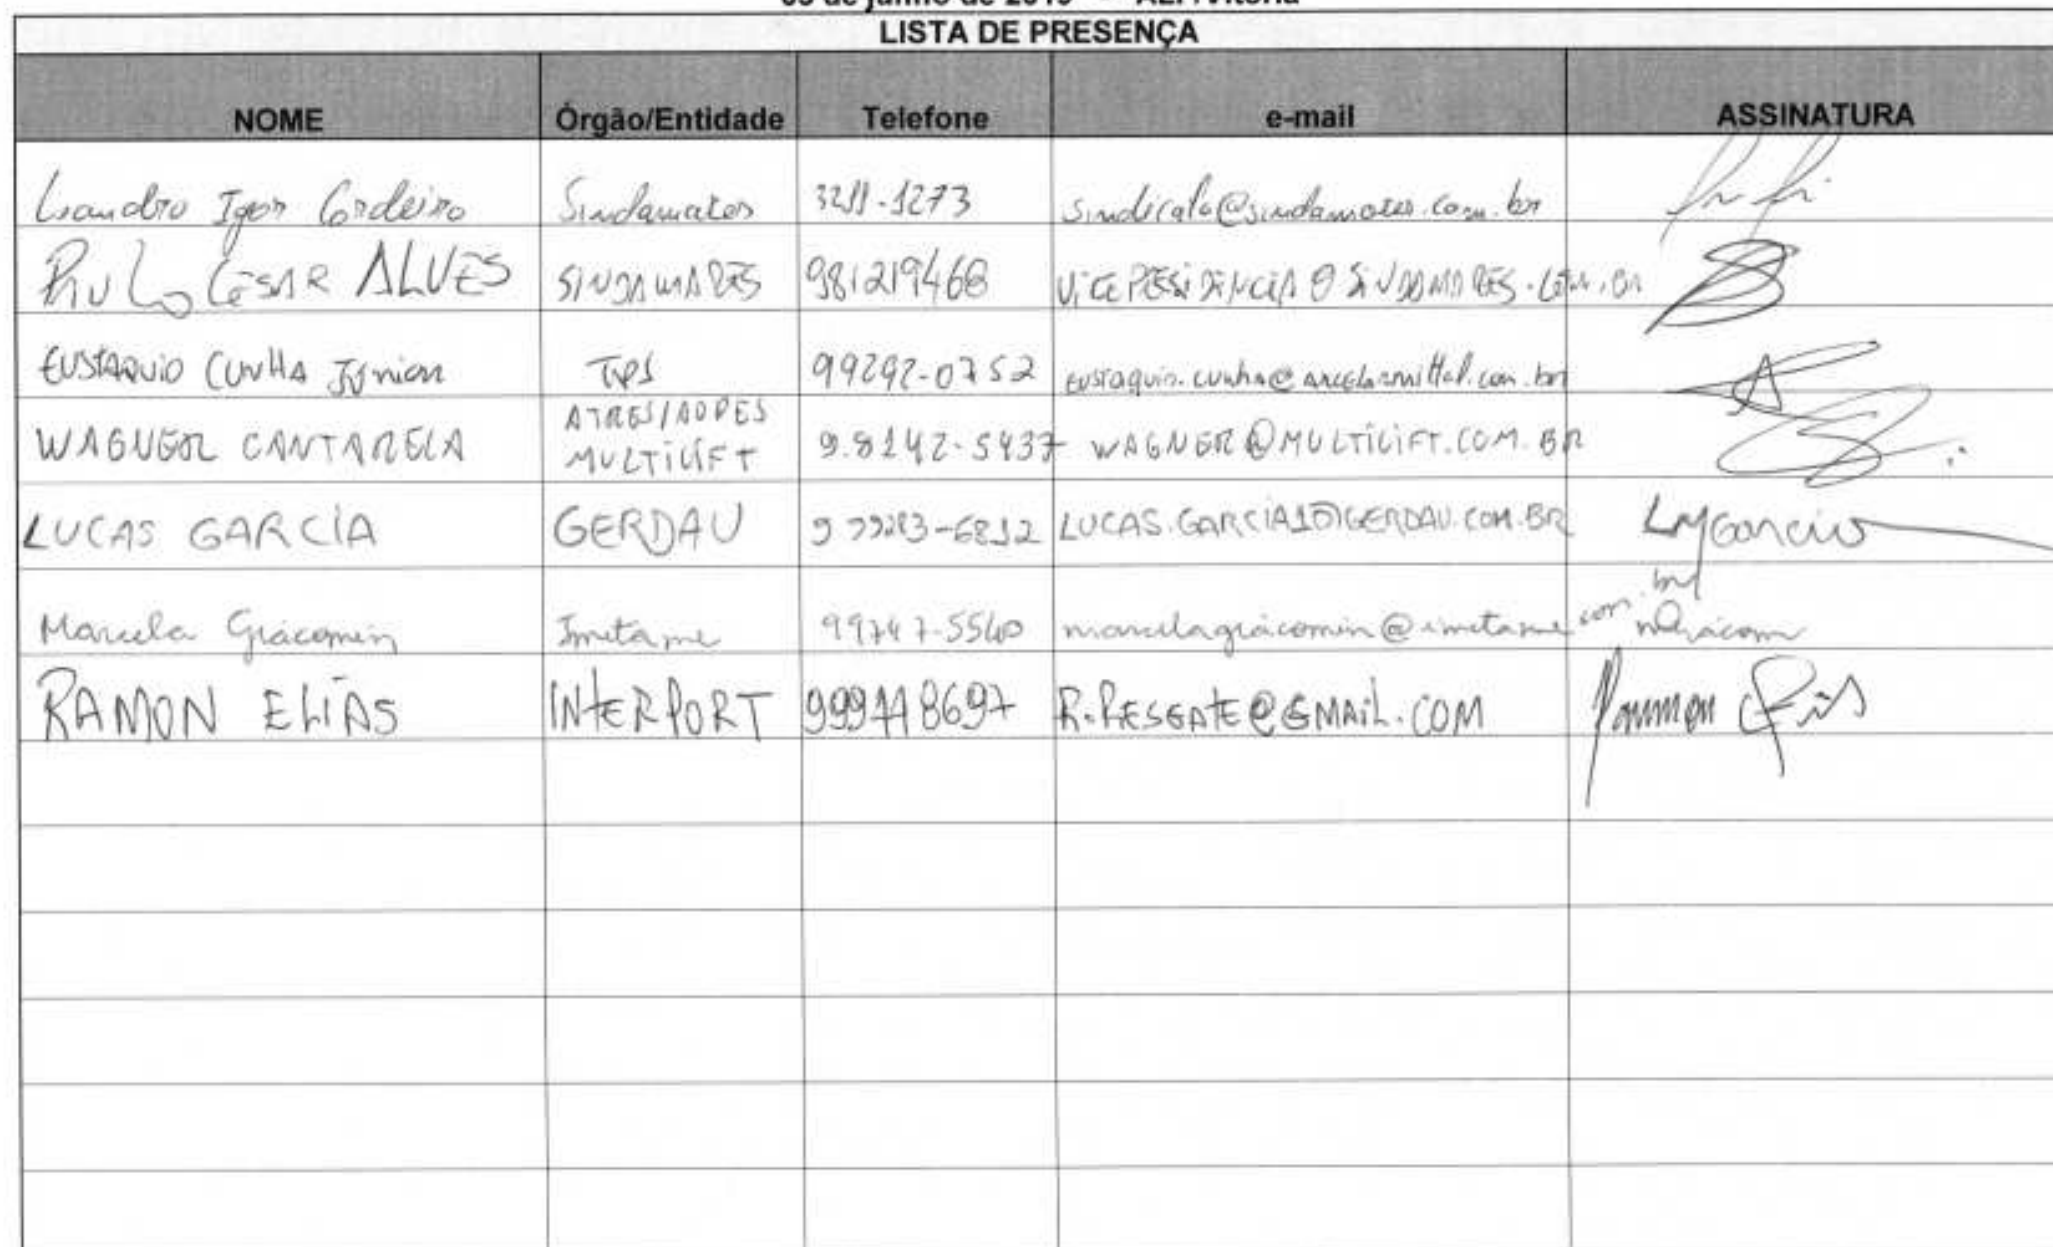 de junho de 2019 - ALF/Vitória
LISTA DE PRESENÇA
NOME Órgão/Entidade Telefone e-mail ASSINATURA
Leandro Igor Cordeiro Sindamares 3211-1273 sindicato@sindamares.com.br
PAULO CÉSAR ALVES SINDAMARES 981219468 VICEPRESIDÊNCIA@SINDAMARES.COM.BR
EUSTAQUIO CUNHA JÚNIOR TPS 99292-0752 eustaquio.cunha@arcelormittal.com.br
WAGNER CANTARELA ATRES/ADDES MULTILIFT 9.8142-5437 WAGNER@MULTILIFT.COM.BR
LUCAS GARCIA GERDAU LUCAS.GARCIA1@GERDAU.COM.BR LMGarcia
Marcela Giacomin Imetame 99747-5540 marcelagiacomin@imetame.com.br MGiacomin
RAMON ELIAS INTERPORT 999118697 R.RESGATE@GMAIL.COM Rammon Elias